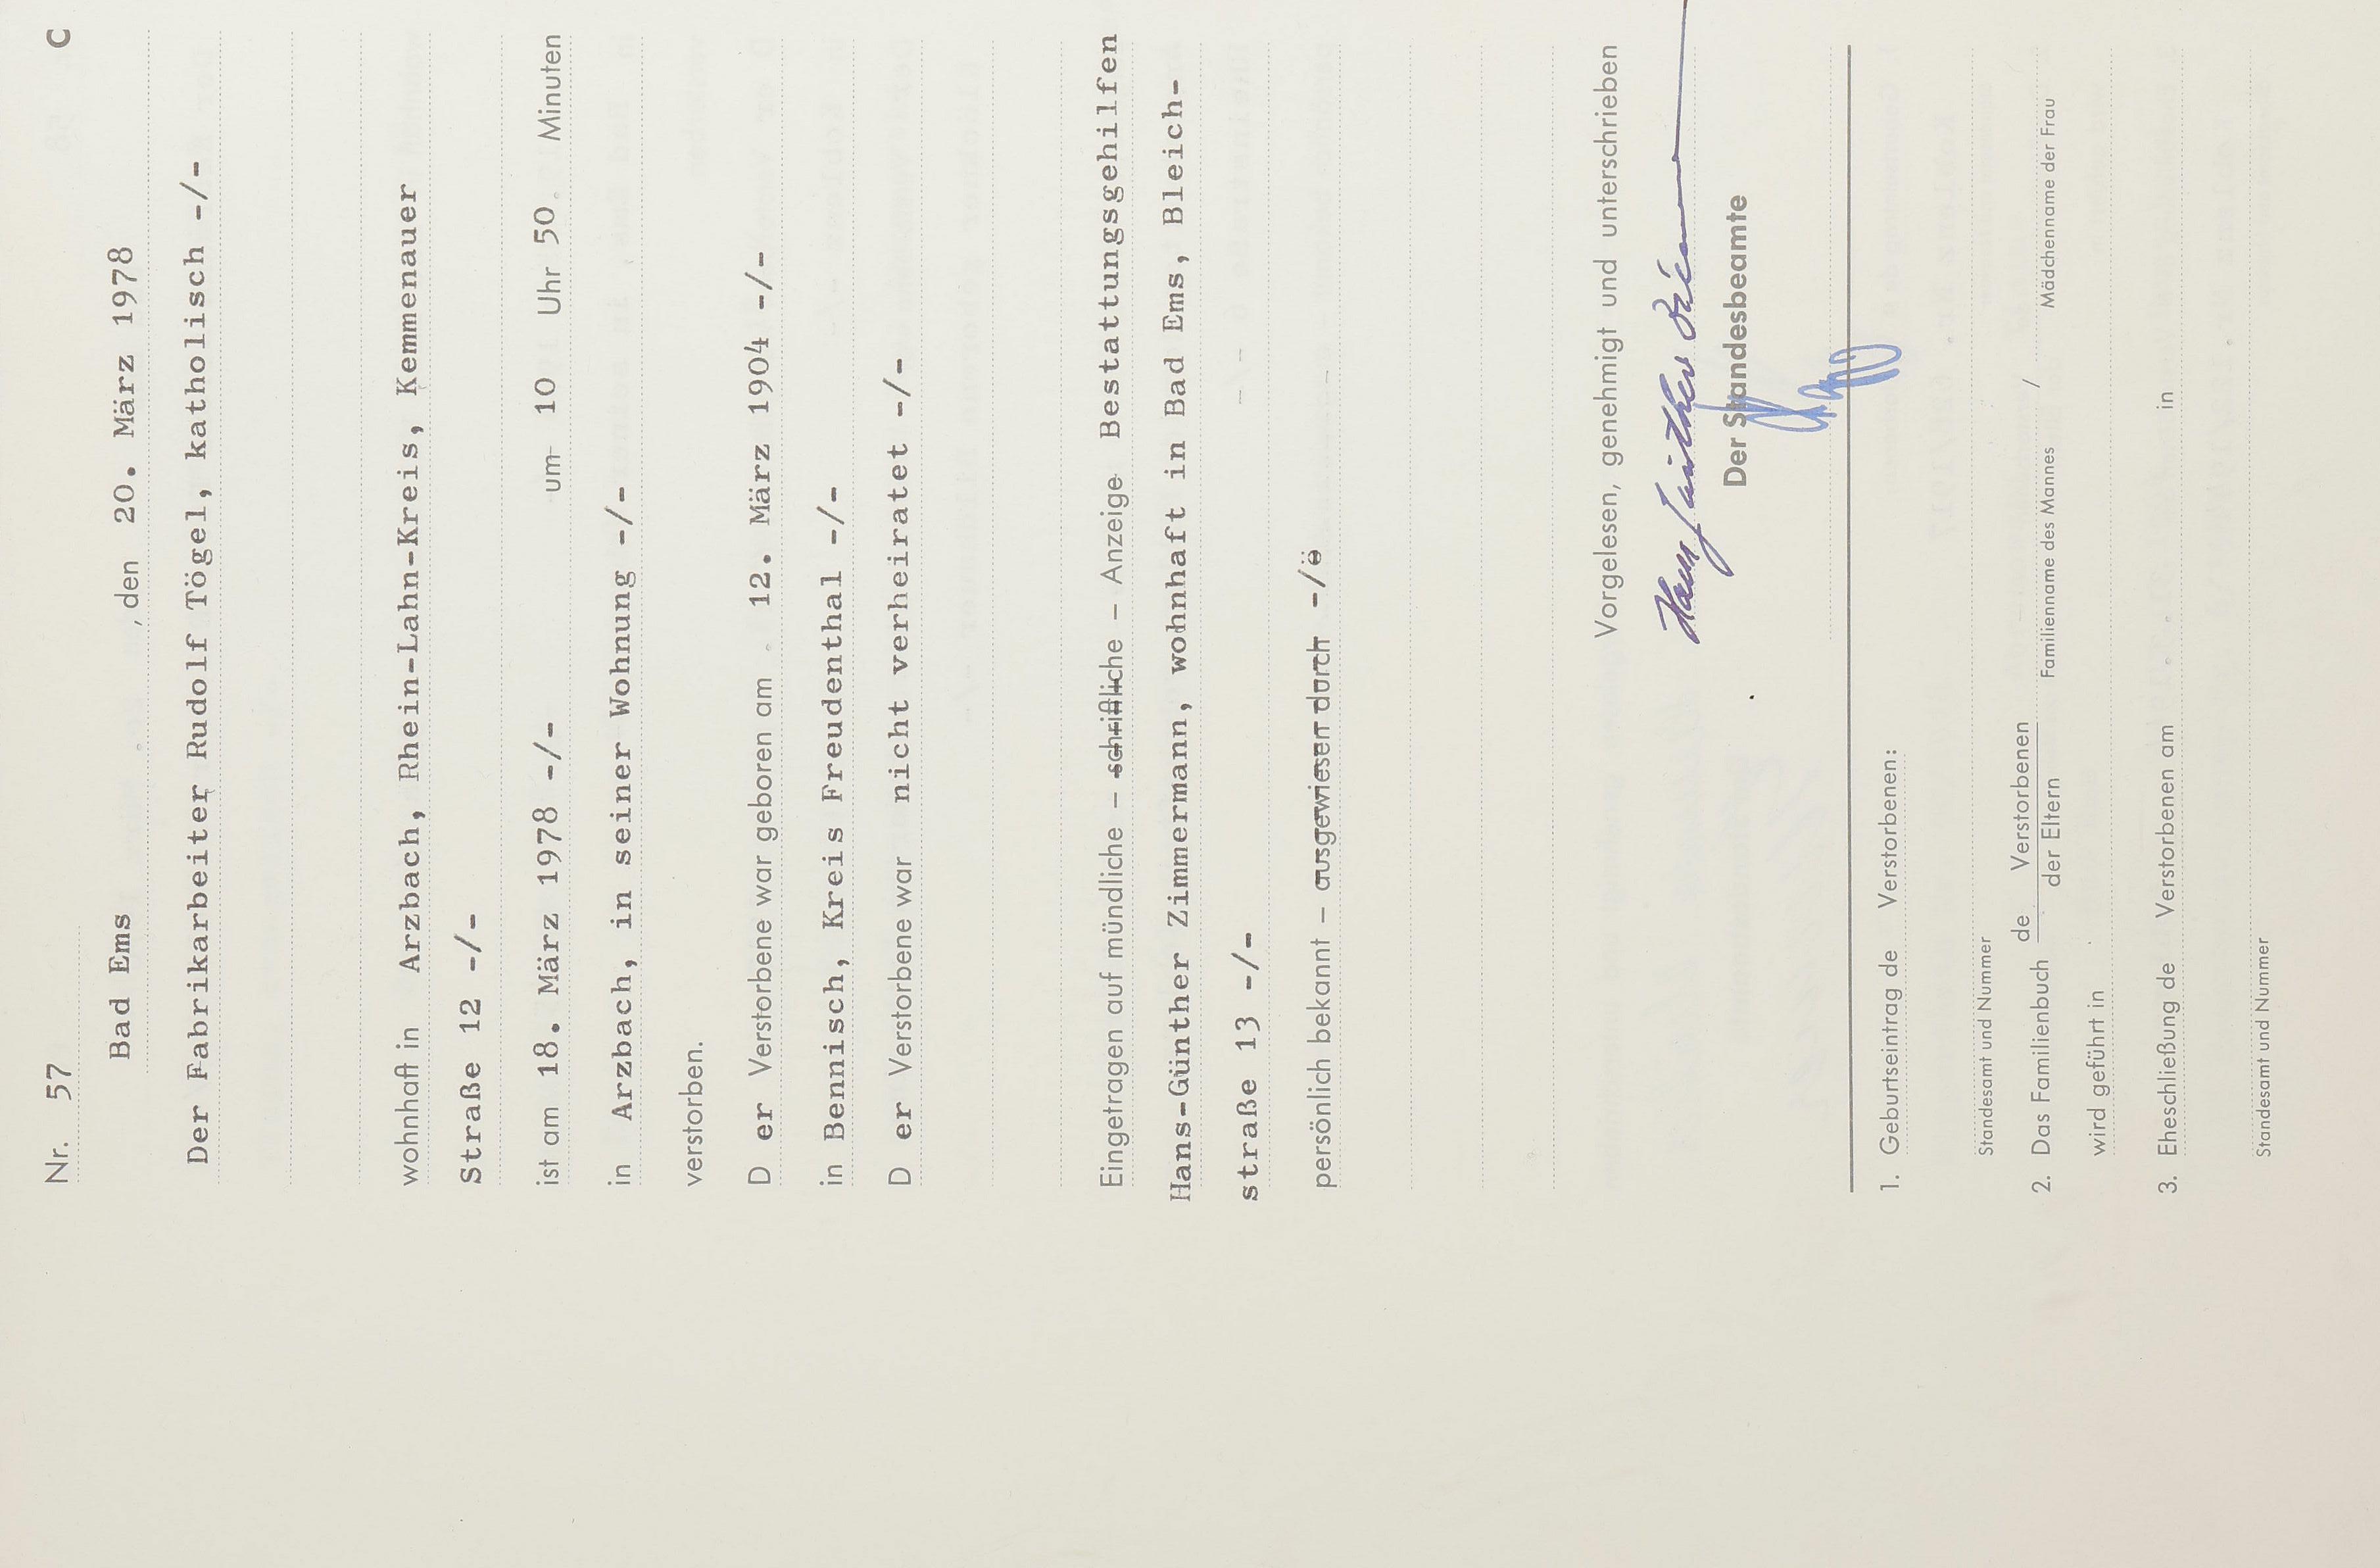 Nr. 57 C
Bad Ems , den 20. März 1978
Der Fabrikarbeiter Rudolf Tögel, katholisch -/-
wohnhaft in Arzbach, Rhein-Lahn-Kreis, Kemmenauer
Straße 12 -/-
ist am 18. März 1978 -/- um 10 Uhr 50 Minuten
in Arzbach, in seiner Wohnung -/-
verstorben.
D er Verstorbene war geboren am 12. März 1904 -/-
in Bennisch, Kreis Freudenthal -/-
D er Verstorbene war nicht verheiratet -/-
Eingetragen auf mündliche – schriftliche – Anzeige Bestattungsgehilfen
Hans-Günther Zimmermann, wohnhaft in Bad Ems, Bleich-
straße 13 -/-
persönlich bekannt – ausgewiesen durch -/ö
Vorgelesen, genehmigt und unterschrieben
Hans Günther
Der Standesbeamte
1. Geburtseintrag de Verstorbenen:
Standesamt und Nummer
2. Das Familienbuch de Verstorbenen /
der Eltern Familienname des Mannes Mädchenname der Frau
wird geführt in
3. Eheschließung de Verstorbenen am in
Standesamt und Nummer